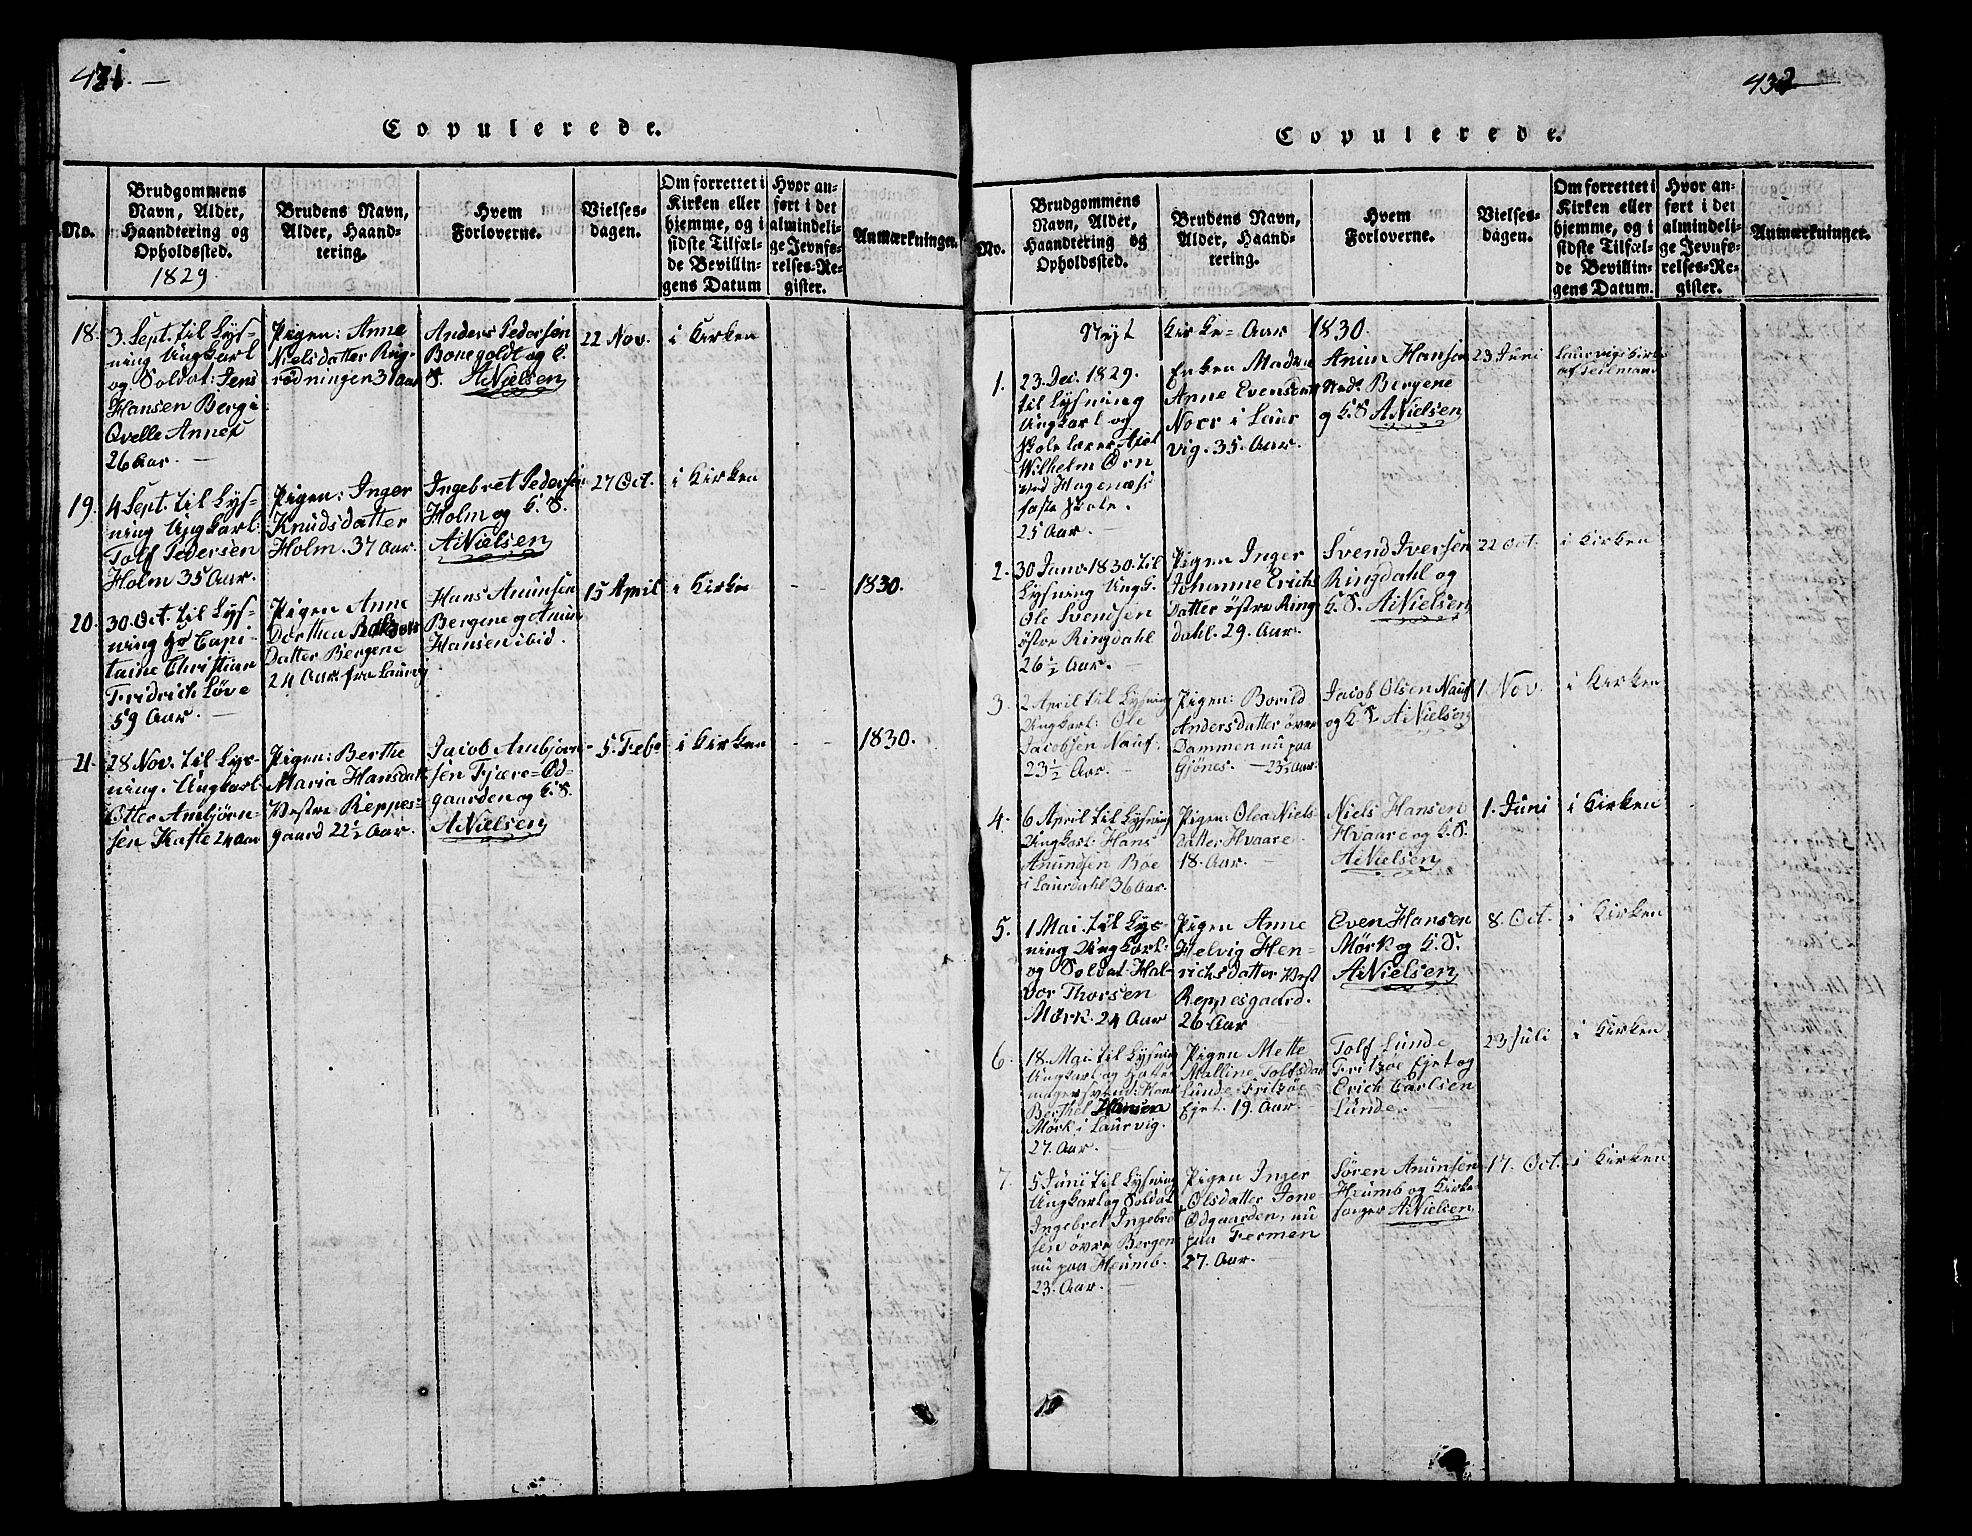 431. —
Copulerede.
No.
Brudgommens
Navn, Alder,
Haandtering og
Opholdssted.
1829
Brudens Navn,
Alder, Haand-
tering.
Hvem
Forloverne.
Vielses-
dagen.
Om forrettet i
Kirken eller
hjemme, og i
sidste Tilfæl-
de Bevillin-
gens Datum
Hvor an-
ført i det
almindeli-
ge Jevnfø-
relses-Re-
gister.
Anmærkninger.
18.
3 Sept. til Lys-
ning Ungkarl
og Soldat: Jens
Hansen Berg i
Qvelle Annex
26 Aar. —
Pigen: Anne
Nielsdatter Ryg-
redningen 31 Aar
Anders Pedersen
Bonegoldt og K.
S. A: Nielsen
22 Nov.
i Kirken
19.
4 Sept. til Lys-
ning Ungkarl
Tolf Pedersen
Holm 35 Aar.
Pigen: Inger
Knudsdatter
Holm. 37 Aar.
Ingebret Pedersen
Holm og K. S.
A: Nielsen
27 Oct.
i Kirken
20.
30 Oct. til Lys-
ning Hr Capi-
taine Christian
Fridrich Løve
59 Aar. —
Pigen Anne
Dorthea
Datter Bergene
24 Aar. fra Laurvig
Hans Anunsen
Bergene og Anun
Hansen ibid.
15 April
i Kirke
1830.
21.
28 Nov. til Lys-
ning. Ungkarl
Otter Ambjørn-
sen Kaste 24 Aar
Pigen: Berthe
Maria Hansdatt
Vestre Reppes-
gaard 22½ Aar.
Jacob Ambjørn-
sen Fjære-Ød-
gaarden og K. S.
A: Nielsen
5 Febr
i Kirken
1830.
432
Copulerede.
No.
Brudgommens
Navn, Alder,
Haandtering og
Opholdssted.
Brudens Navn,
Alder, Haand-
tering.
Hvem
Forloverne.
Vielses-
dagen.
Om forrettet i
Kirken eller
hjemme, og i
sidste Tilfæl-
de Bevillin-
gens Datum.
Hvor an-
ført i det
almindeli-
ge Jevnfø-
relses-Re-
gister.
Anmærkninger.
Nyt Kirke-Aar 1830.
1.
23 Dec. 1829.
til Lysning
Ungkarl og
Skolelærer Axel
Wilhelm Ørn
ved Hagenæss
faste Skole.
25 Aar.
Enken Madme
Anne Evensdatt
Noer i Laur
vig. 35. Aar.
Anun Hansen
Nedr Bergene
og K. S A Nielsen
23 Juni
Laurvigs Kirke
af
2.
30 Janv. 1830. til
Lysning Ungk.
Ole Svendsen
østre Ringdahl
26½ Aar. —
Pigen Inger
Johanne Erichs
Datter østre Ring
dahl. 29. Aar.
Svend Iversen
Ringdahl og
K. S. A: Nielsen
22 Oct.
i Kirken
3.
2 April til Lysning
Ungkarl: Ole
Jacobsen Nauf.
23½ Aar. —
Pigen: Borild
Andersdatter øvre
Dammen nu paa
Gjønes. — 23½ Aar.
Jacob Olsen Nauf
og K. S. A: Nielsen
1 Nov.
i Kirken
4.
6 April til Lysning
Ungkarl: Hans
Anunsen Boe
i Laurdahl 36 Aar.
Pigen: Olea Niels
datter Hvaare.
18. Aar. —
Niels Hansen
Hvaare og K. S.
A: Nielsen
1. Juni
i Kirken
5.
1 Mai. til Lys-
ning Ungkarl
og Soldat Hal-
vor Thorsen
Mørk. 24 Aar
Pigen Anne
Helvig Hen-
richsdatter Vest
Reppesgaard.
26 Aar
Even Hansen
Mørk og K. S.
A: Nielsen
8. Oct.
i Kirken
6.
18. Mai til Lysning
Ungkarl og Hatte
magersvend: Hans
Berthel Hansen
Mørk i Laurvig.
27. Aar. —
Pigen Mette
Malline Tolfsdat
Lunde Fritzøe-
Ejet. 19. Aar.
Tolf Lunde
Fritzøe Ejet og
Erich Carlsen
Lunde.
23 Juli
i Kirken
7.
5 Juni til Lysning
Ungkarl og Soldat
Ingebret Ingebret
sen øvre Bergen
nu paa Heumb.
23. Aar. —
Pigen Inger
Olsdatter Tone-
Ødgaarden, nu
paa Fermen
27. Aar. —
Søren Anunsen
Heumb og Kirke
sanger A: Nielsen
17. Oct.
i Kirken